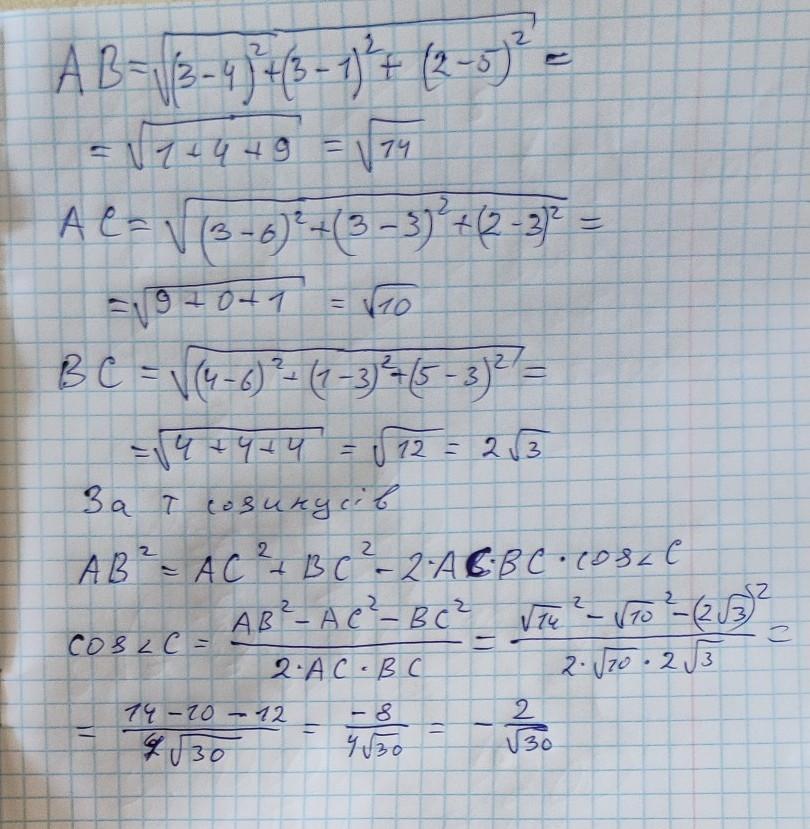 AB=√((3-4)²+(3-1)²+(2-5)²) =
= √(1+4+9) = √14
AC= √((3-6)²+(3-3)²+(2-3)²) =
=√(9+0+1) = √10
BC = √((4-6)²+(1-3)²+(5-3)²) =
=√(4+4+4) = √12 = 2√3
За т козинусів
AB² = AC²+BC²-2·AC·BC·cos∠C
cos∠C = (AB²-AC²-BC²)/(2·AC·BC) = (√14²-√10²-(2√3)²)/(2·√10·2√3) =
= (14-10-12)/(4√30) = (-8)/(4√30) = -2/√30